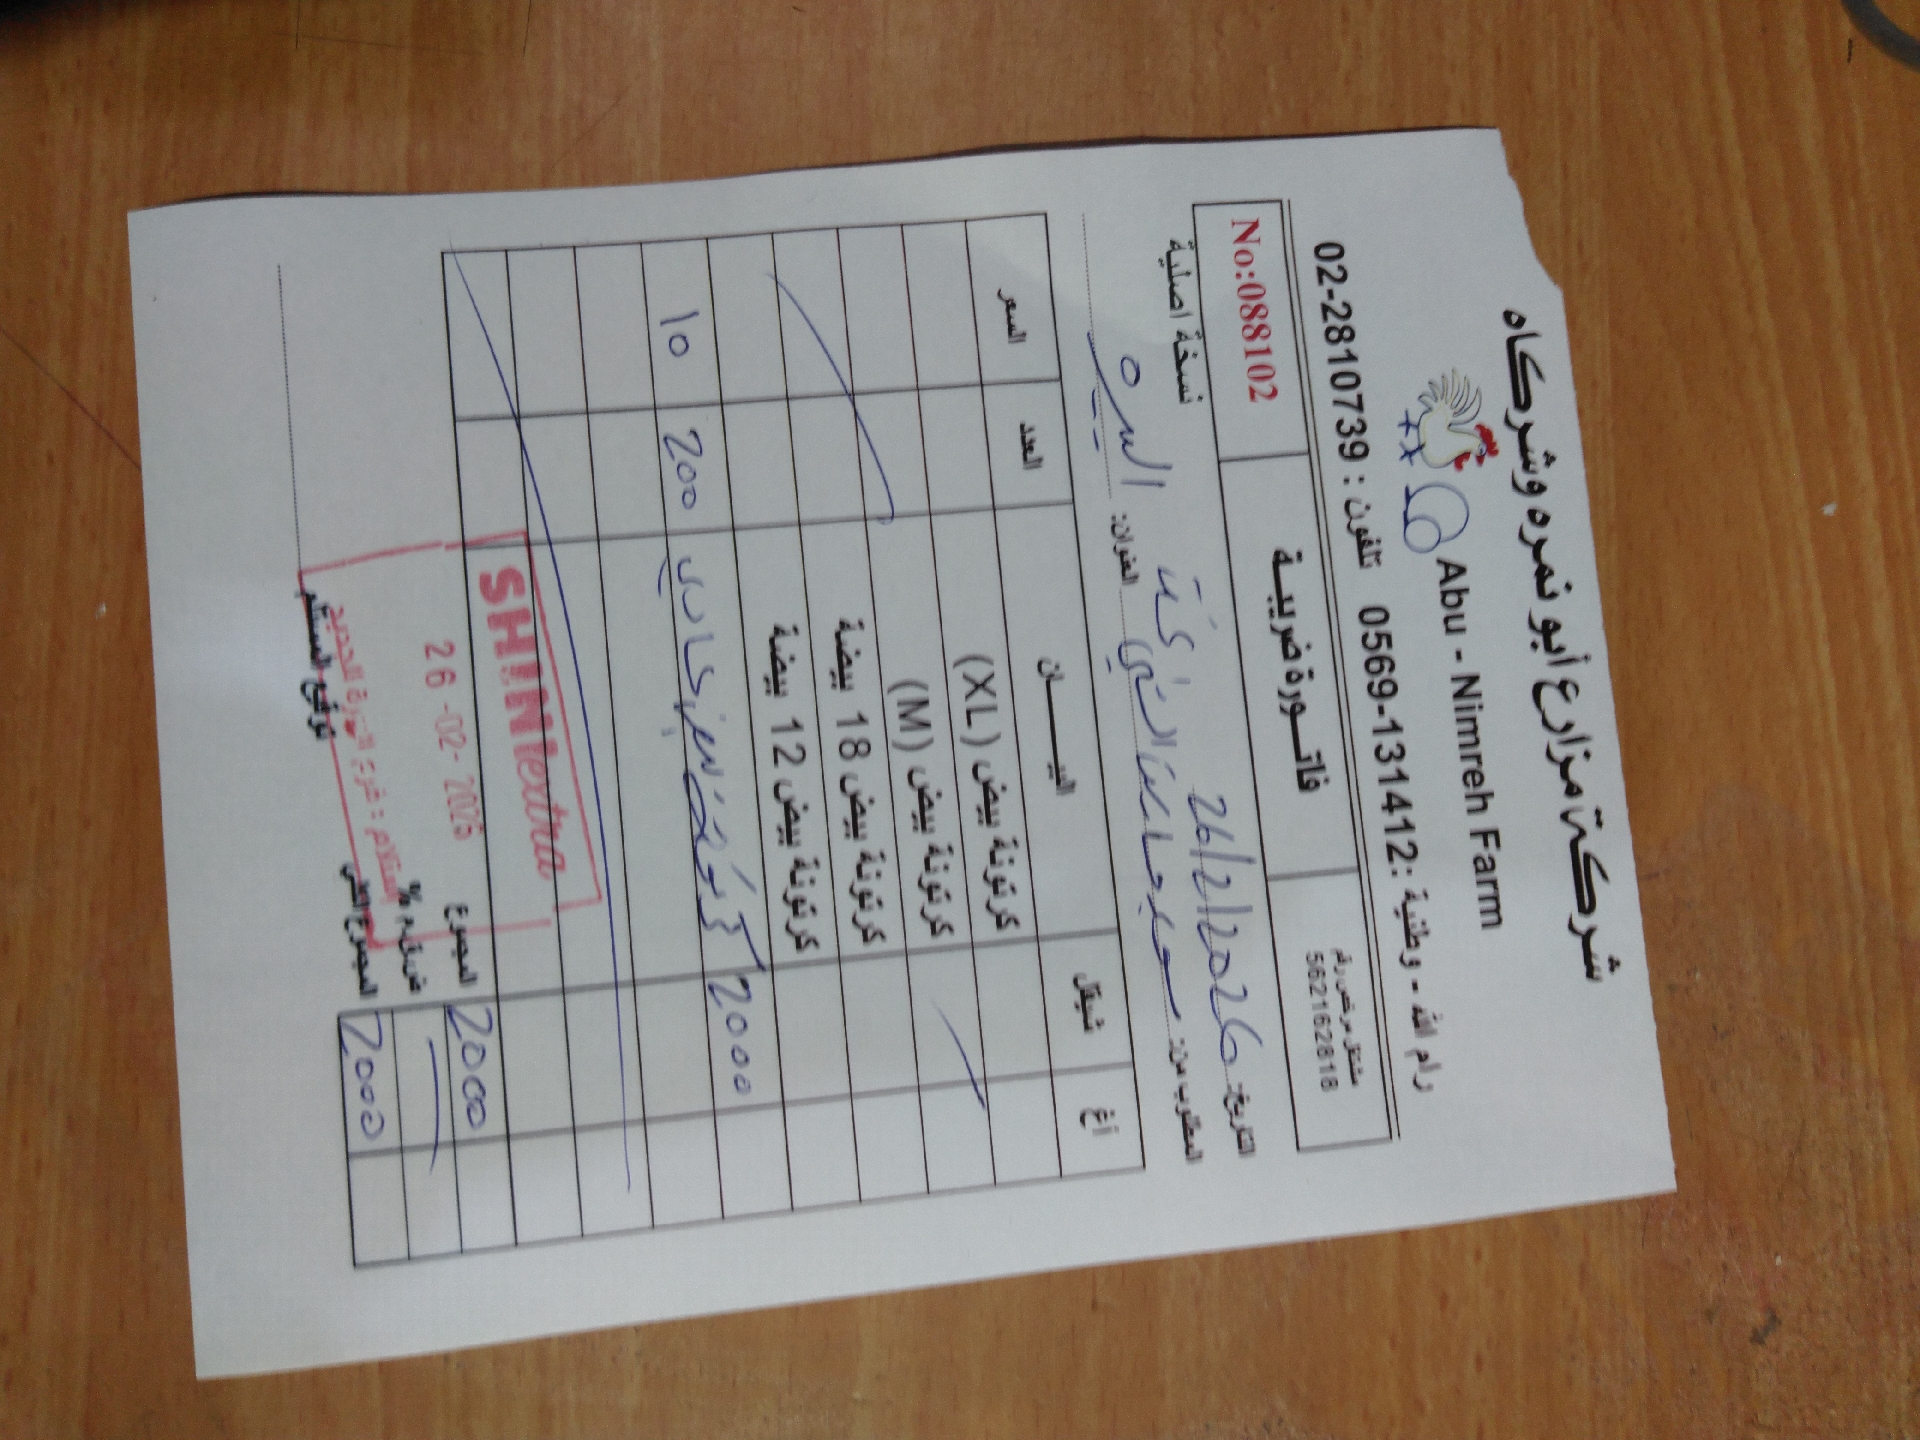 شركة مزارع أبو نمره وشركاه
Abu - Nimreh Farm
رام الله - وطنية : 0569-131412 تلفون : 02-2810739
مشتغل مرخص رقم
562162818
فاتورة ضريبية
No:088102
التاريخ: 26/2/2026
نسخة اصلية
المطلوب من:
العنوان: البيره
أغ شيقل البيــــان العدد السعر
كرتونة بيض (XL)
كرتونة بيض (M)
كرتونة بيض 18 بيضة
كرتونة بيض 12 بيضة
2000 200 10
SHINIextra
المجموع 2000
26 -02- 2026
ض.ق.م %
المجموع الكلي 2000
توقيع المستلم